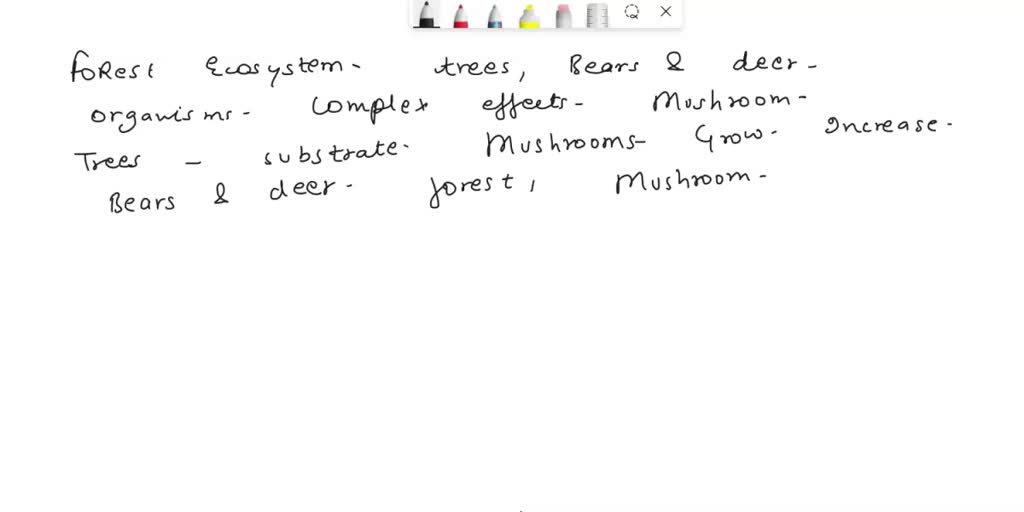 foRest Ecosystem- trees, Bears & deer-
organisms- complex effects- Mushroom-
Trees - substrate. Mushrooms- Grow- Increase-
Bears & deer- forest, Mushroom-